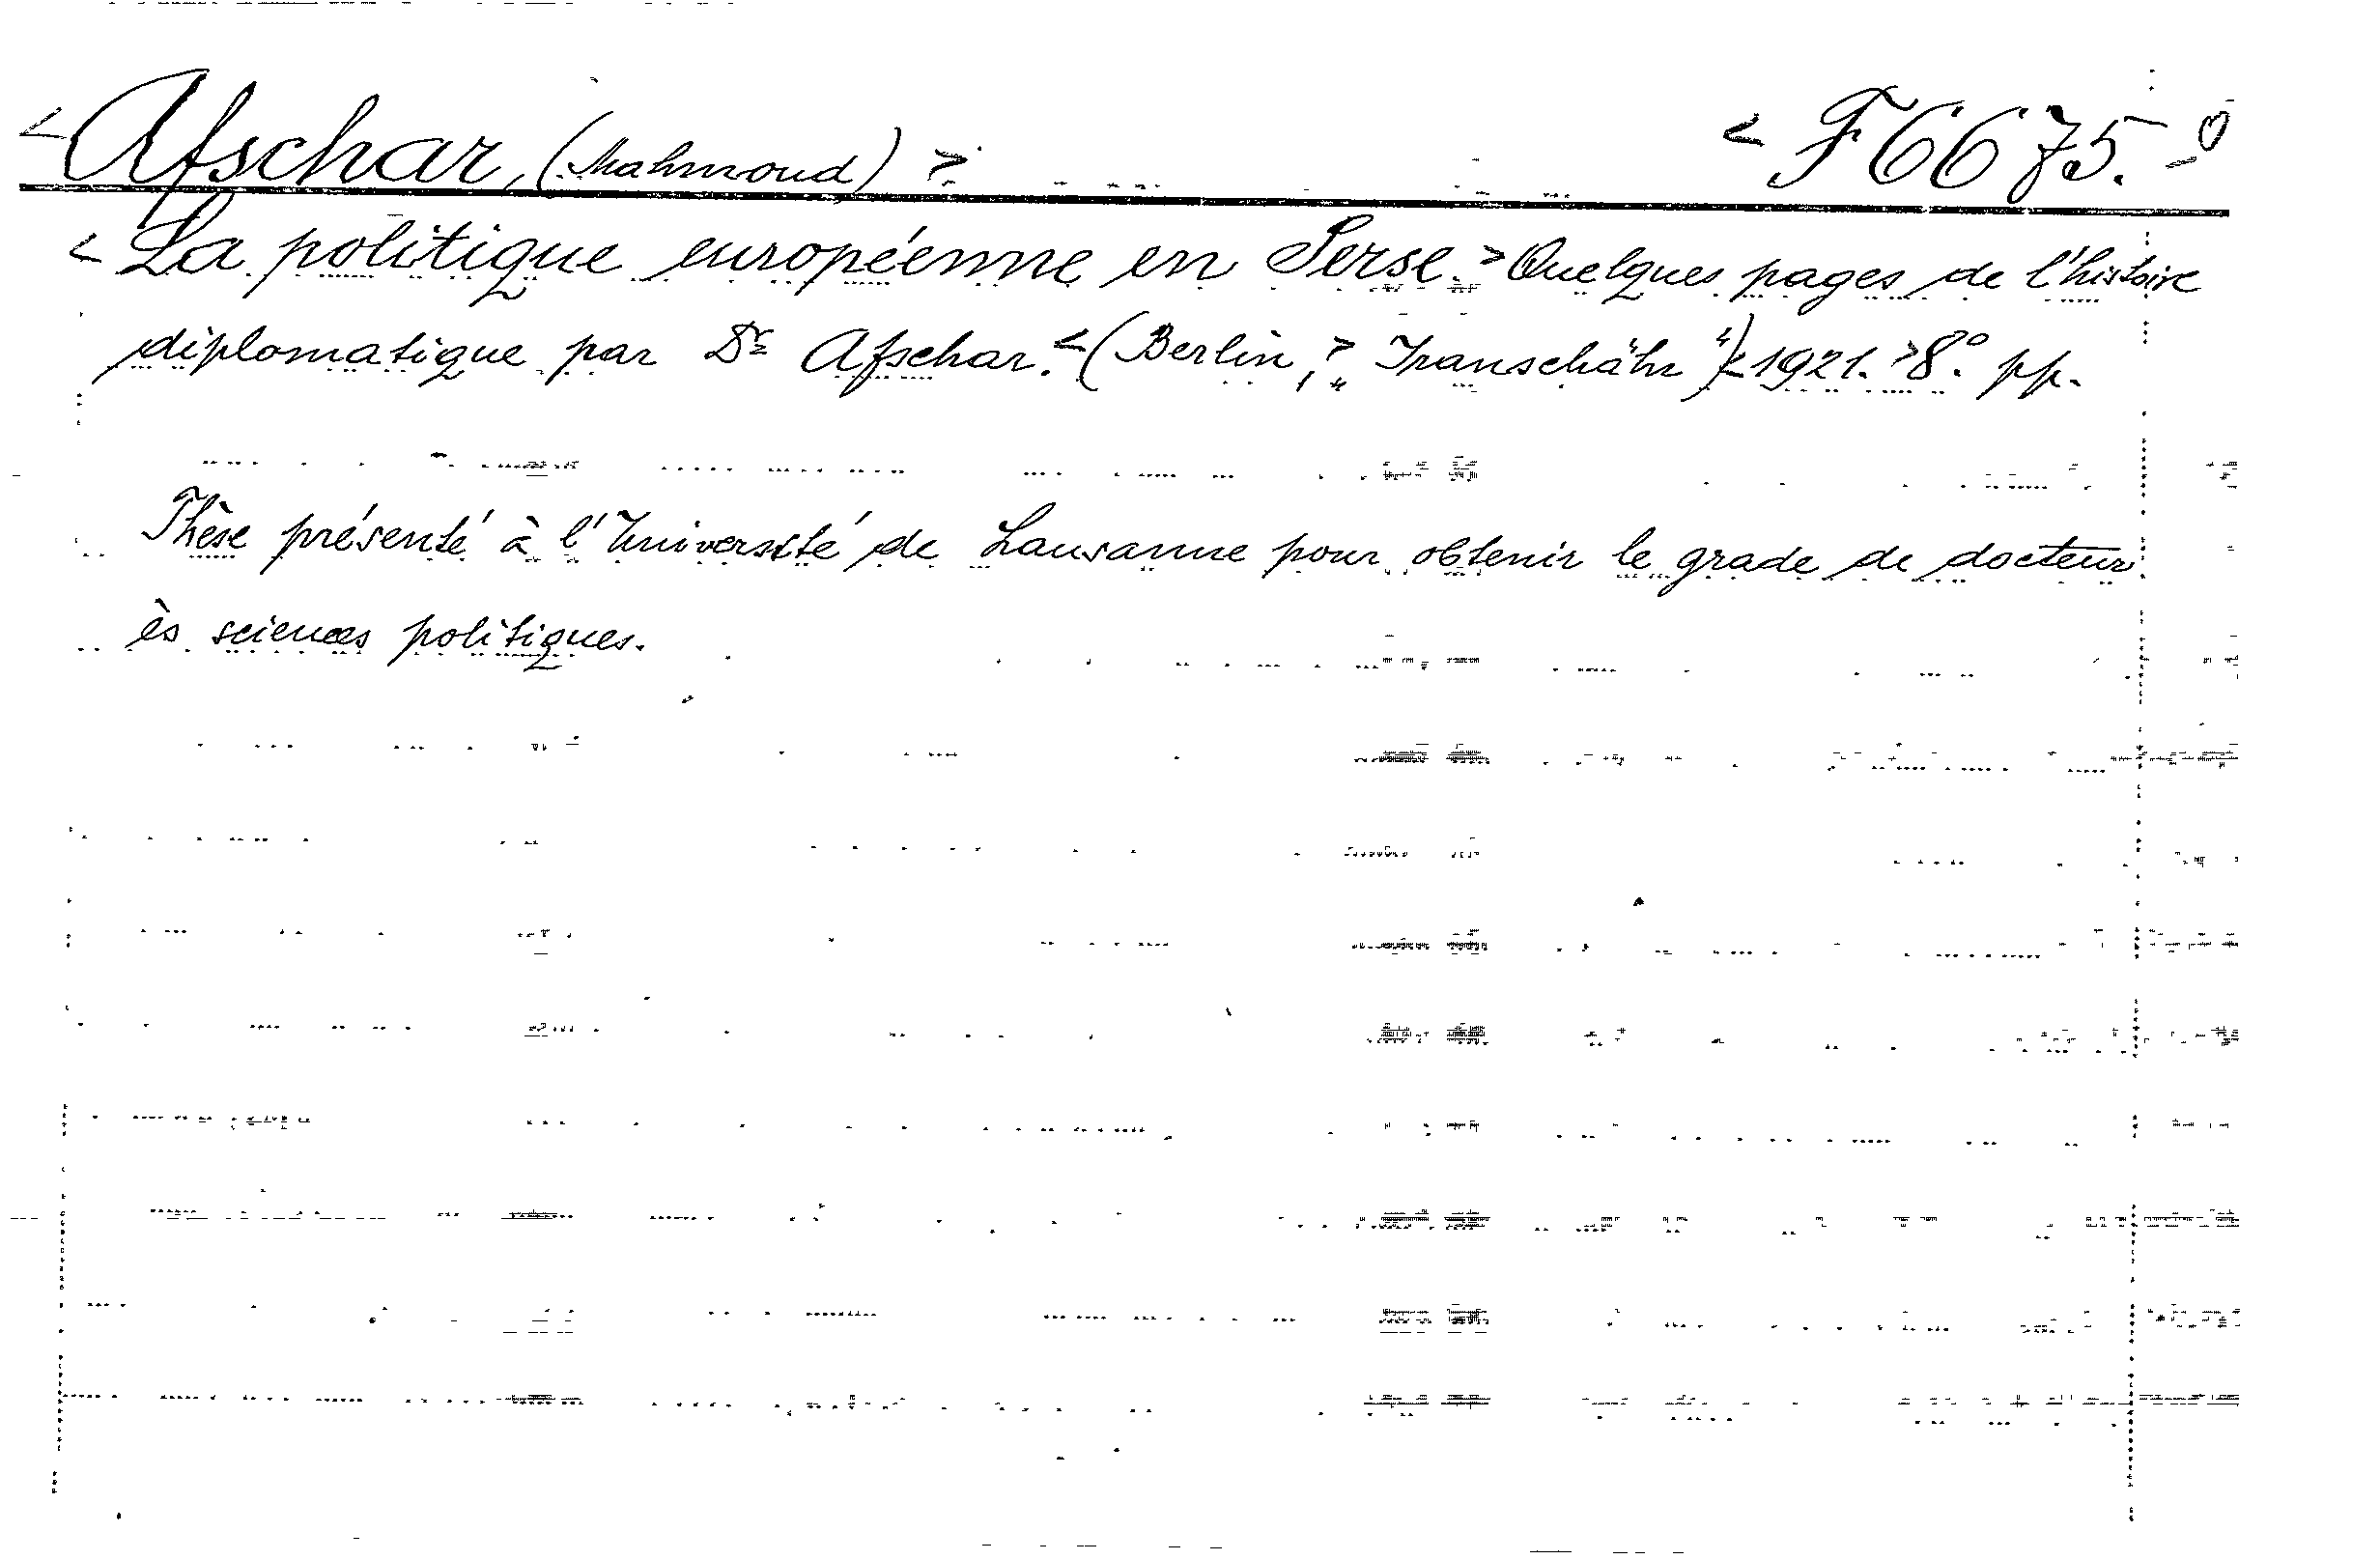 < Afschar, (Mahmoud) > < F6675. 0
< La politique européenne en Perse. > Quelques pages de l'histoire
diplomatique par Dr Afschar. < (Berlin, > „Iranschähr“) < 1921. > 8.° pp.
Thèse présenté à l'Université de Lausanne pour obtenir le grade de docteur
ès sciences politiques.